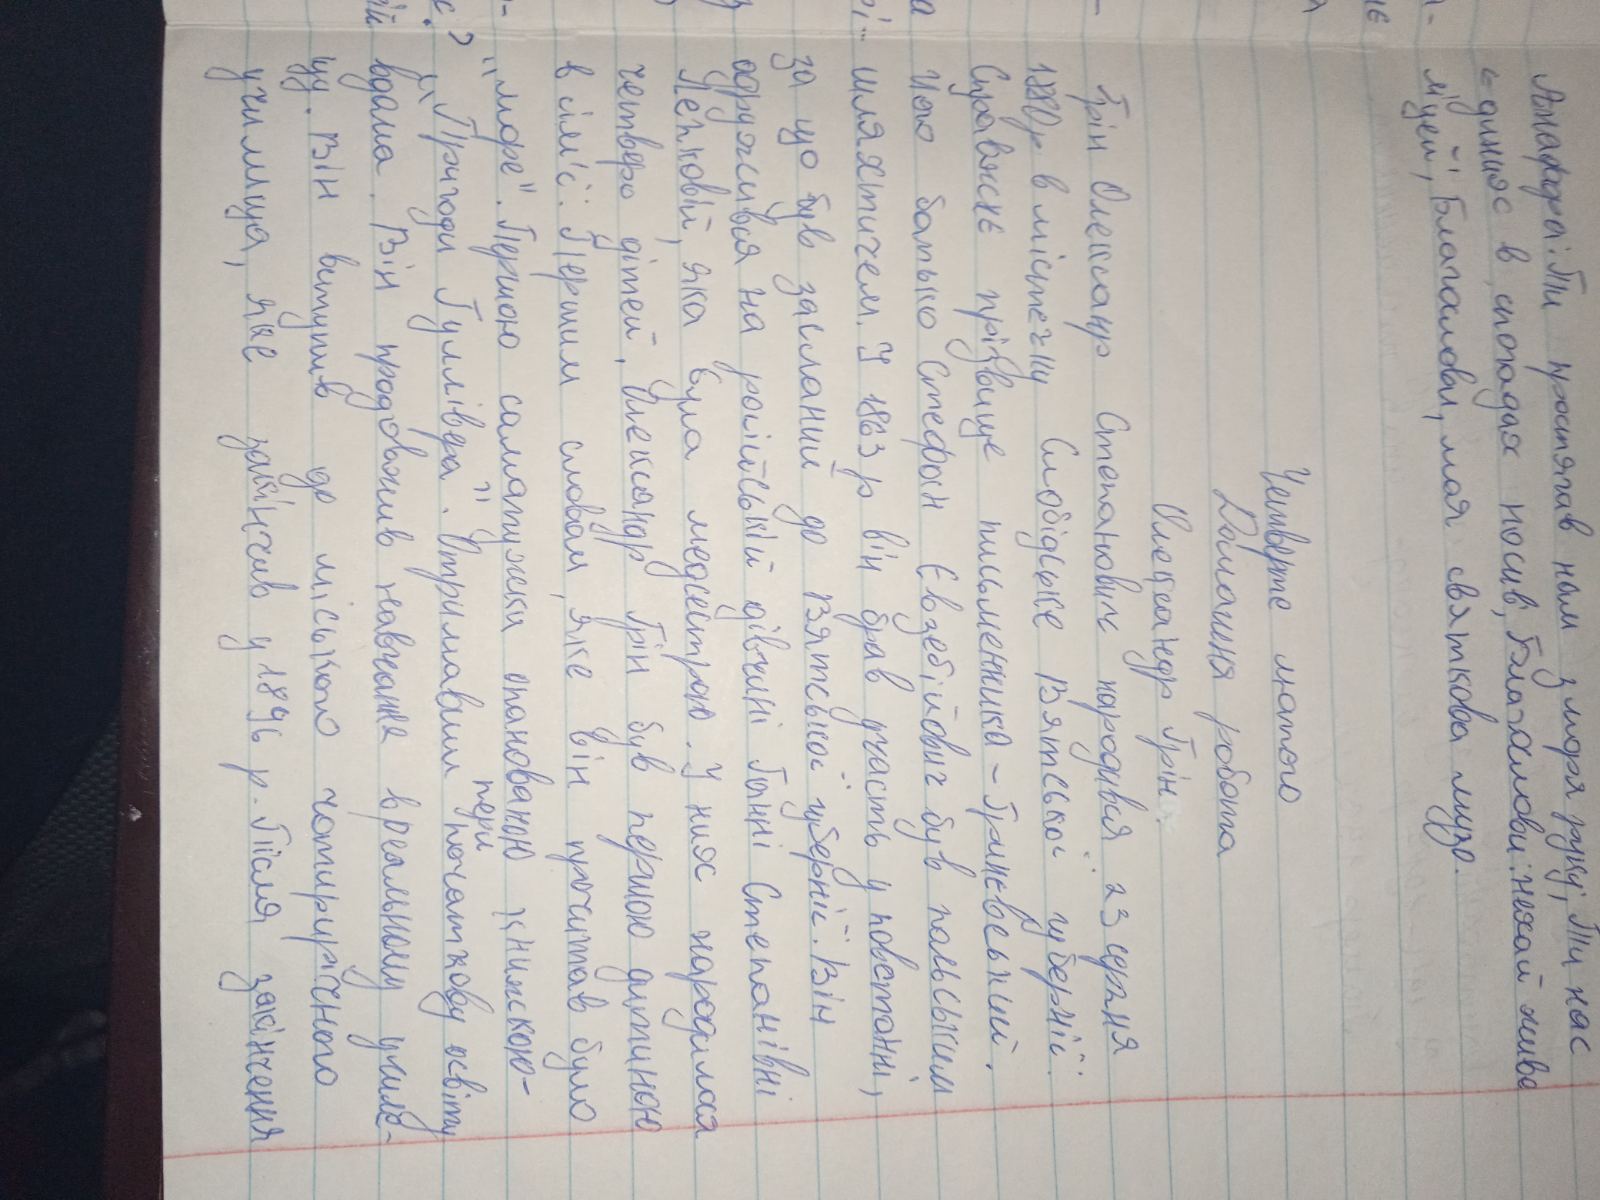 Анафора: Ти простягав нам з моря руку, Ти нас
єднаєс в спогадах носив, Благослови: нехай жива
міцей, Благослови, моя святкова музо.
Четверте лютого
Домашня робота
Олександр Грін.
Грін Олександр Степанович народився 23 серпня
1880р в містечку Слобідське Вятської губернії.
Справжнє прізвище письменника - Гриневський.
Його батько Стефан Євзебійович був польським
шляхтичем. У 1863 р він брав участь у повстанні,
за що був засланий до Вятської губернії. Він
одружився на російській дівчині Ганні Степанівні
Лепковій, яка була медсестрою. У них народилося
четверо дітей, Олександр Грін був першою дитиною
в сім'ї. Першим словом, яке він прочитав було
"море". Першою самотужки опанованою книжкою-
"Пригоди Гуллівера". Отримавши початкову освіту
пері
вдома. Він продовжив навчання в реальному учили-
щу. Він вступив до міського чотирирічного
училища, яке закінчив у 1896 р. Після закінчення